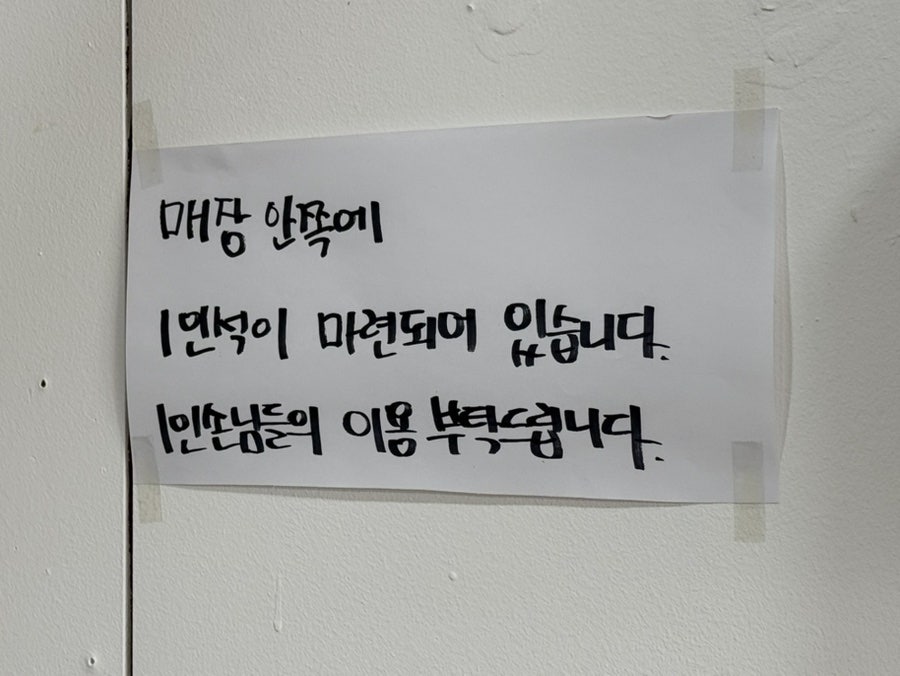 매장 안쪽에
1인석이 마련되어 있습니다.
1인손님들의 이용 부탁드립니다.